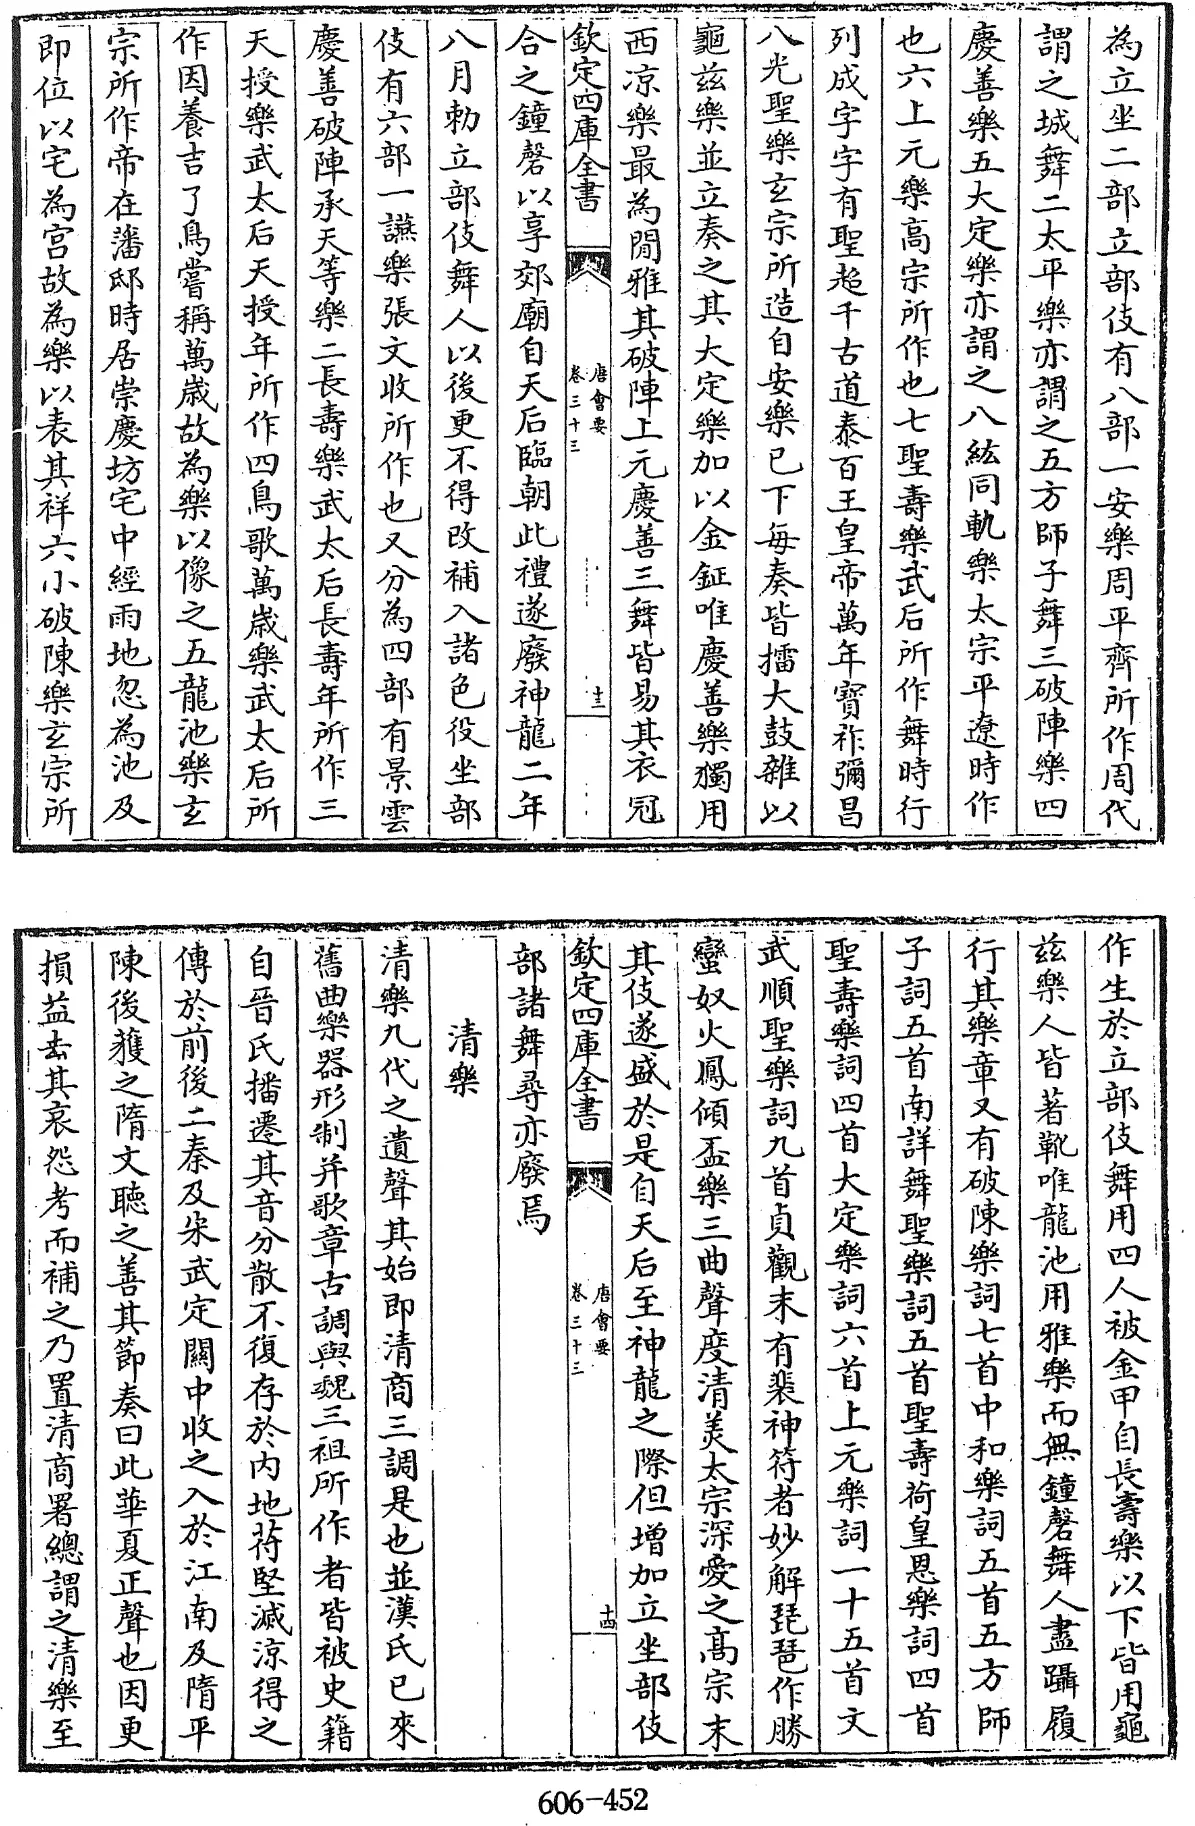 為立坐二部立部伎有八部一安樂周平齊所作周代
謂之城舞二太平樂亦謂之五方師子舞三破陣樂四
慶善樂五大定樂亦謂之八紘同軌樂太宗平遼時作
也六上元樂高宗所作也七聖壽樂武后所作舞時行
列成字字有聖超千古道泰百王皇帝萬年寶祚彌昌
八光聖樂玄宗所造自安樂已下每奏皆擂大鼓雜以
龜茲樂並立奏之其大定樂加以金鉦唯慶善樂獨用
西凉樂最為閒雅其破陣上元慶善三舞皆易其衣冠
欽定四庫全書
唐會要
卷三十三
十三
合之鐘磬以享郊廟自天后臨朝此禮遂廢神龍二年
八月勅立部伎舞人以後更不得改補入諸色役坐部
伎有六部一讌樂張文收所作也又分為四部有景雲
慶善破陣承天等樂二長壽樂武太后長壽年所作三
天授樂武太后天授年所作四鳥歌萬歲樂武太后所
作因養吉了鳥嘗稱萬歲故為樂以像之五龍池樂玄
宗所作帝在藩邸時居崇慶坊宅中經雨地忽為池及
即位以宅為宮故為樂以表其祥六小破陳樂玄宗所
作生於立部伎舞用四人被金甲自長壽樂以下皆用龜
茲樂人皆著靴唯龍池用雅樂而無鐘磬舞人盡躡履
行其樂章又有破陳樂詞七首中和樂詞五首五方師
子詞五首南詳舞聖樂詞五首聖壽荷皇恩樂詞四首
聖壽樂詞四首大定樂詞六首上元樂詞一十五首文
武順聖樂詞九首貞觀末有裴神符者妙解琵琶作勝
蠻奴火鳳傾盃樂三曲聲度清美太宗深愛之高宗末
其伎遂盛於是自天后至神龍之際但增加立坐部伎
欽定四庫全書
唐會要
卷三十三
十四
部諸舞尋亦廢焉
清樂
清樂九代之遺聲其始即清商三調是也並漢氏已來
舊曲樂器形制并歌章古調與魏三祖所作者皆被史籍
自晉氏播遷其音分散不復存於內地苻堅滅涼得之
傳於前後二秦及宋武定關中收之入於江南及隋平
陳後獲之隋文聽之善其節奏曰此華夏正聲也因更
損益去其哀怨考而補之乃置清商署總謂之清樂至
606-452